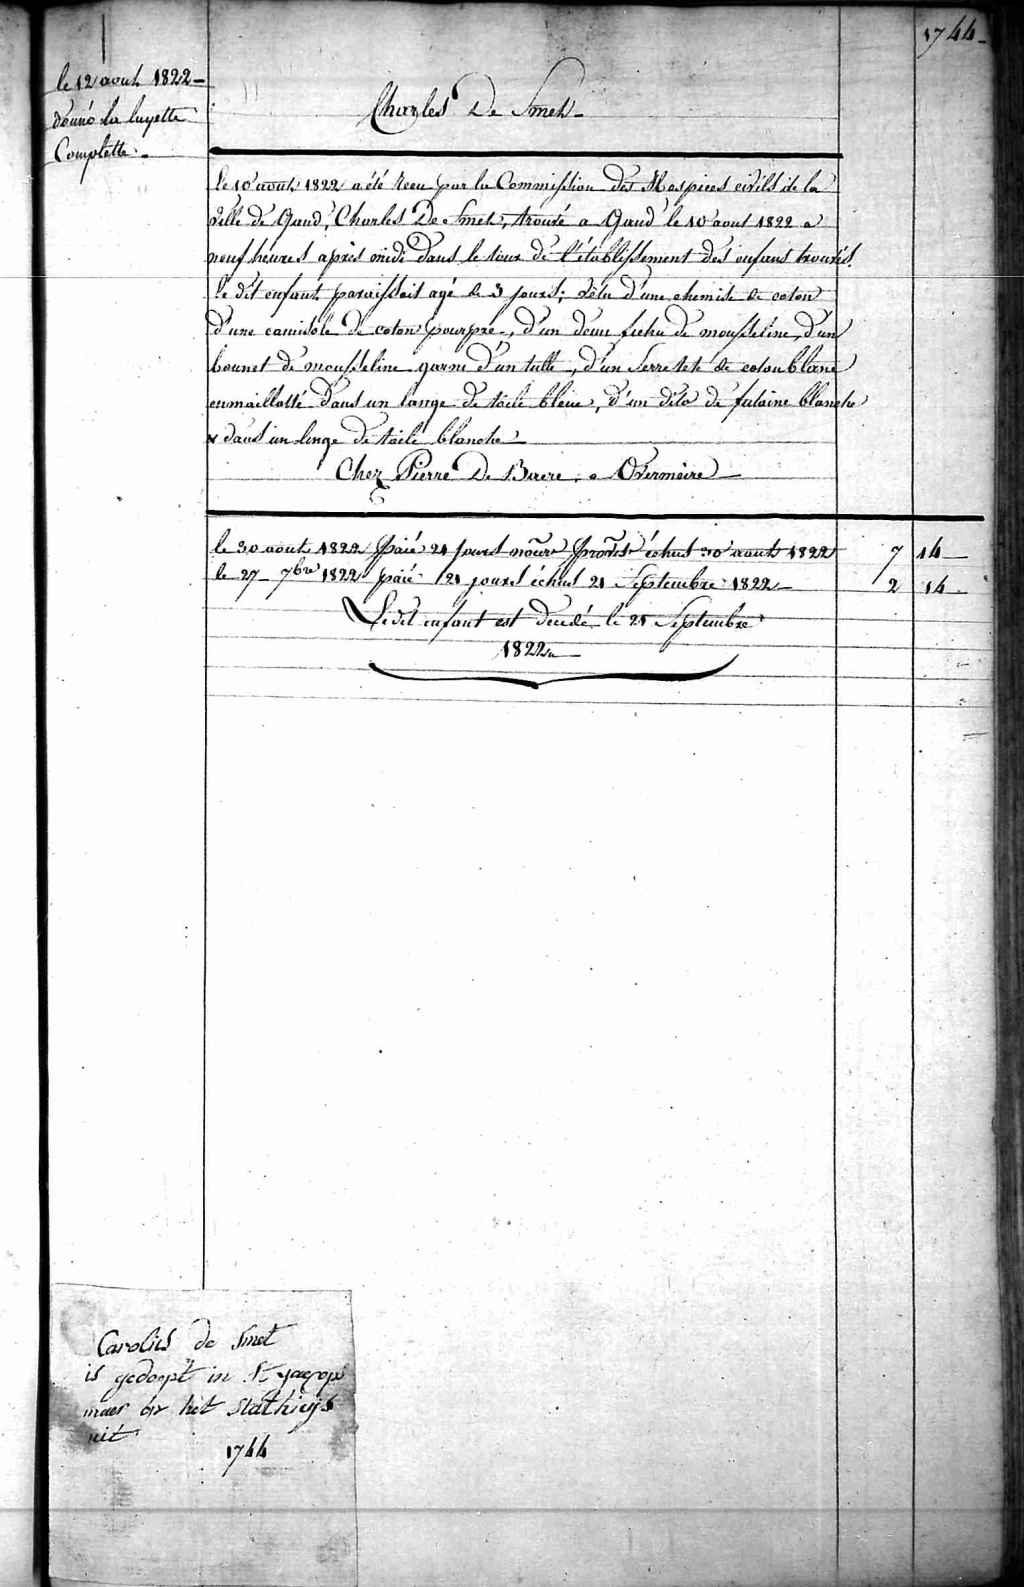 1744
le 12 aout 1822
donné la layette
Complette.
Charles De Smet
le 10 aout 1822 a été recu par la Commission des Hospices civils de la
ville de Gand, Charles De Smet, trouvé a Gand le 10 aout 1822 a
neuf heures après midi dans le tour de l'établissement des enfans trouvés.
le dit enfant paraissait agé de 3 jours; vêtu d'une chemise de coton
d'une camisole de coton pourpre, d'un demi fichu de mousseline, d'un
bonnet de mousseline garni d'un tulle, d'un serretete de coton blanc
enmaillotté dans un lange de toile bleue, d'un dito de futaine blanche
& dans un linge de toile blanche
Chez Pierre De Baere, a Overmeire
le 30 aout 1822 Paié 21 jours nourre provis échus 30 aout 1822 7 14
le 27 7bre 1822 paié 21 jours échus 21 Septembre 1822 2 14
Le dit enfant est decedé le 21 Septembre
1822
Carolus de Smet
is gedoopt in St Jacops
maer op het stathuijs
niet
1744